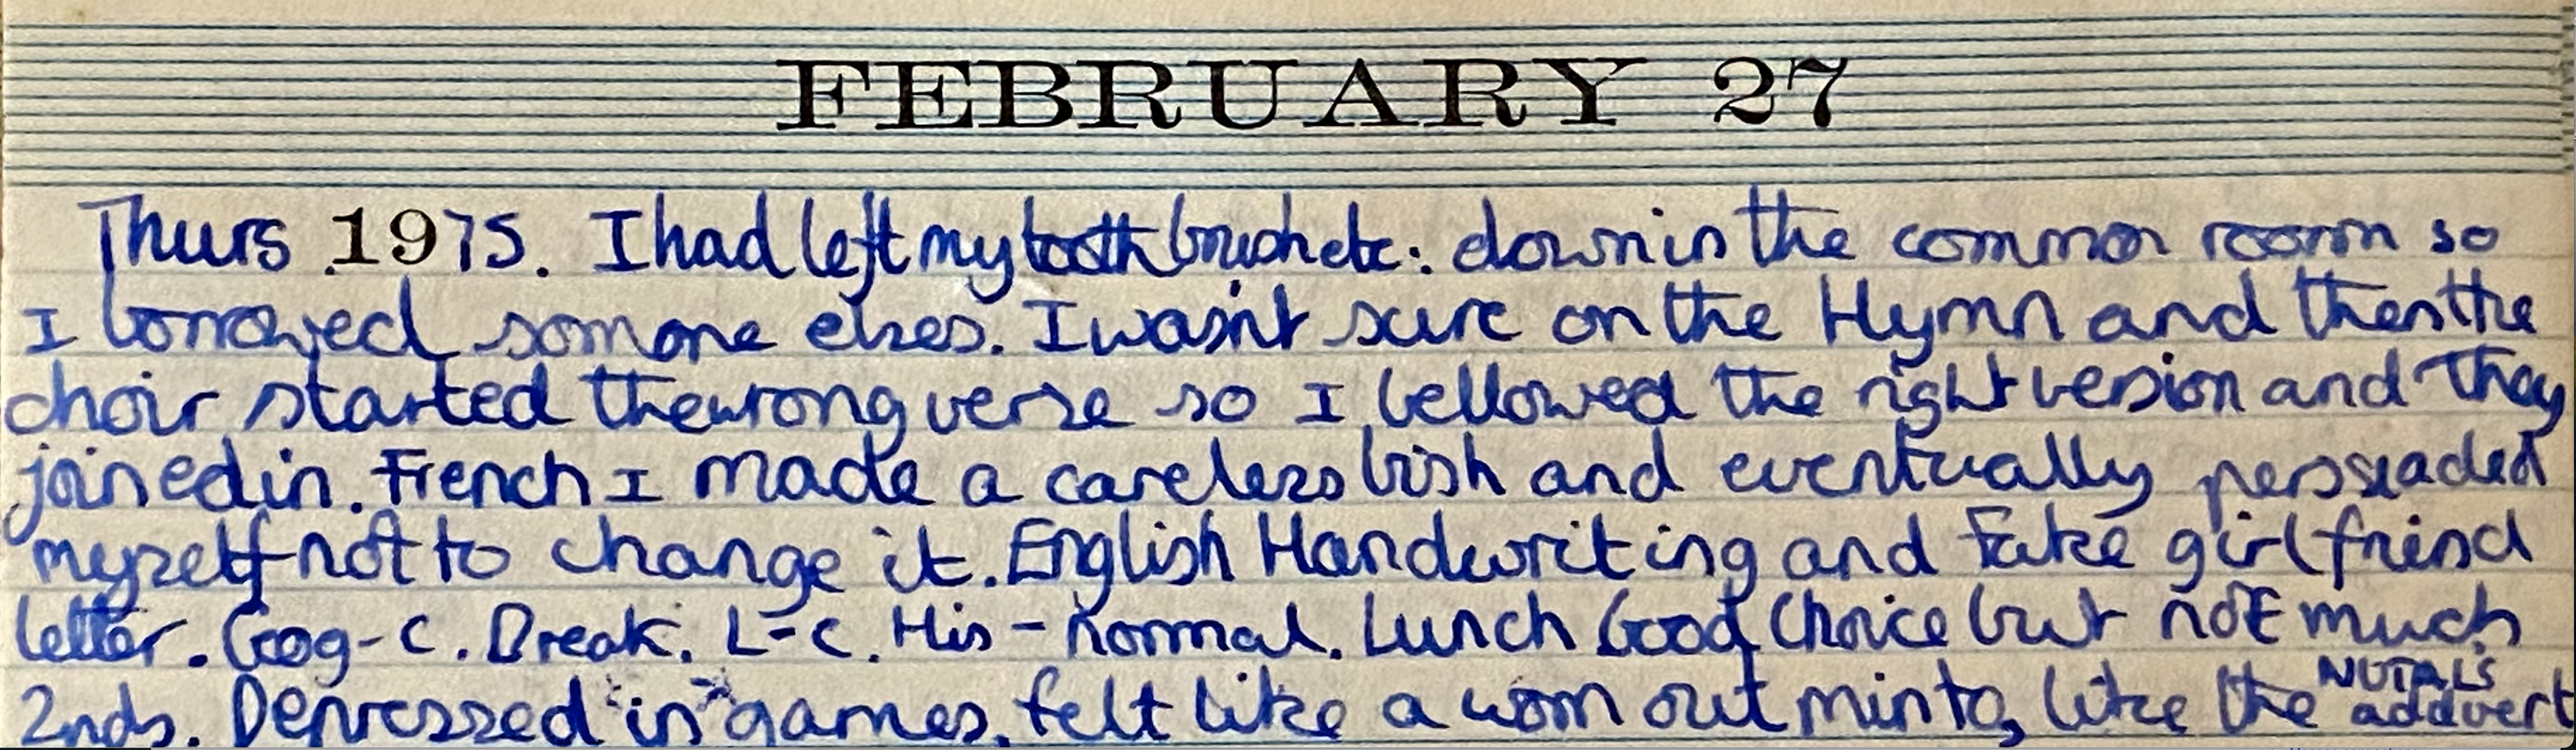 FEBRUARY 27
Thurs 1975. I had left my toothbrush etc: down in the common room so
I borrowed somone elses. I wasn't sure on the Hymn and then the
choir started the wrong verse so I bellowed the right version and they
joined in. French I made a careless bish and eventually perssuaded
myself not to change it. English Handwriting and Fake girlfriend
letter. Geog - C. Break. L - C. His - Normal. Lunch Good Choice but not much
2nds. Depressed in games, felt like a worn out minto, like the NUTALS addvert